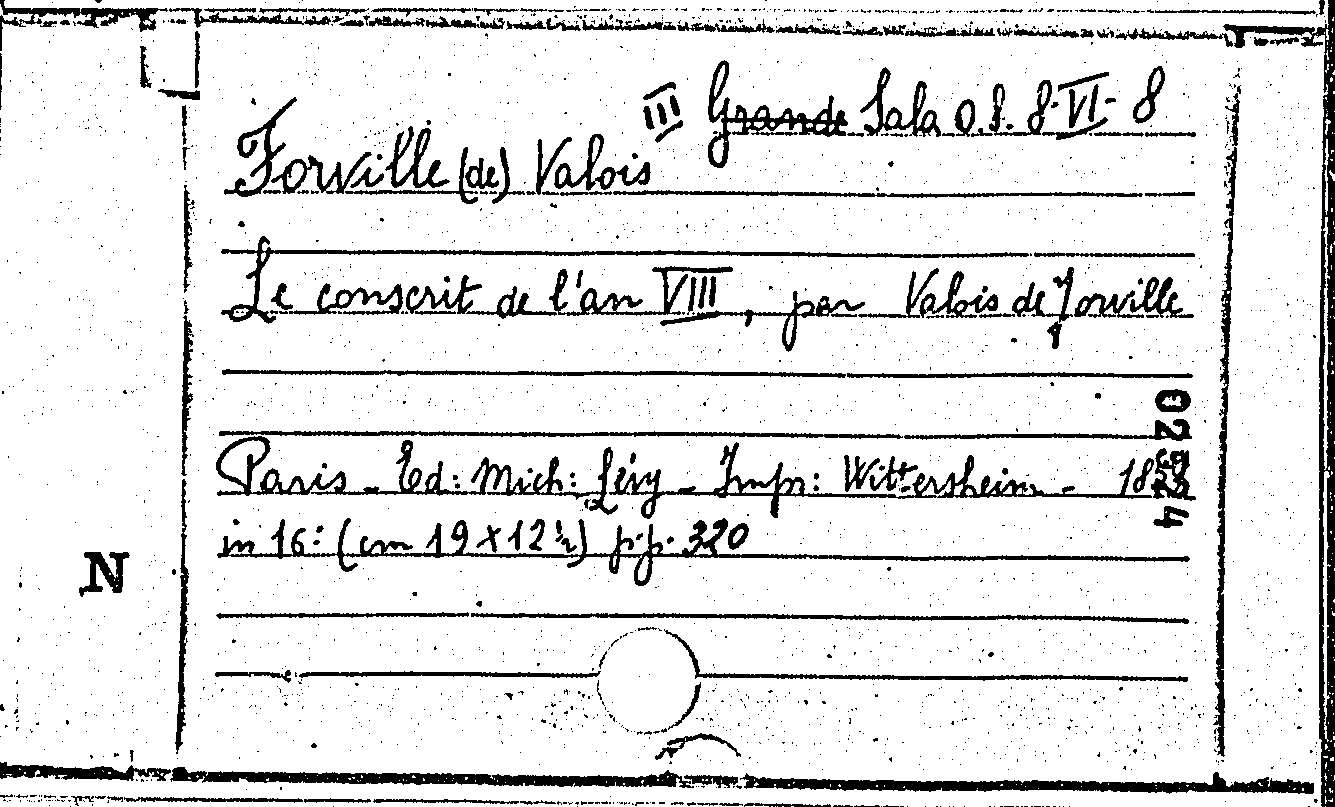 III Grande Sala O.S. 8-VI-8
Forville (de) Valois
Le conscrit de l'an VIII, par Valois de Forville
Paris - Ed: Mich: Lévy - Impr: Wittersheim -
in 16: (cm 19 x 12 ½) p.p. 320
N